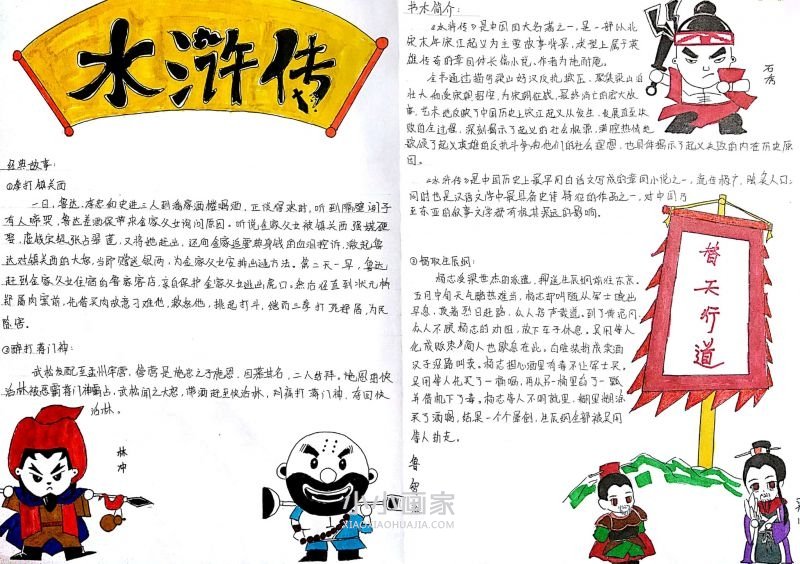 水浒传
经典故事：
①拳打镇关西
一日，鲁达、李忠和史进三人到潘家酒楼喝酒，正饮得浓时，听到隔壁阁子
有人啼哭，鲁达差酒保带来金家父女询问原因。听说金家父女被镇关西强媒硬
娶，虚钱实契，占了翠莲，又将她赶出，还向金家追要典身钱的血泪控诉，激起鲁
达对镇关西的大怒，当即赠送银两，为金家父女安排出逃方法。第二天一早，鲁达
赶到金家父女住宿的鲁家客店，亲自保护金家父女逃出虎口。然后径直到状元桥
郑屠肉案前，先借买肉故意刁难他，激怒他，挑起打斗，继而三拳打死郑屠，为民
除害。
③醉打蒋门神：
武松发配至孟州牢营，管营是施忠之子施恩，因慕其名，二人结拜。施恩因快
活林被恶霸蒋门神霸占，武松闻之大怒，带酒赶至快活林，醉打蒋门神，夺回快
活林。
林冲
书本简介：
《水浒传》是中国四大名著之一，是一部以北
宋末年宋江起义为主要故事背景，类型上属于英
雄传奇的章回体长篇小说。作者为施耐庵。
全书通过描写梁山好汉反抗欺压、聚集梁山泊
壮大和受宋朝招安，为宋朝征战，最终消亡的宏大故
事，艺术地反映了中国历史上宋江起义从发生、发展直至失
败的全过程，深刻揭示了起义的社会根源，满腔热情地
歌颂了起义英雄的反抗斗争和他们的社会理想，也具体揭示了起义失败的内在历史原
因。
《水浒传》是中国历史上最早用白话文写成的章回小说之一，流传极广，脍炙人口；
同时也是汉语文学中最具备史诗特征的作品之一，对中国乃
至东亚的叙事文学都有极其深远的影响。
石秀
②智取生辰纲：
杨志受梁世杰的派遣，押送生辰纲前往东京。
五月中旬天气酷热难当，杨志却叫随从军士晚出
早息，顶着烈日赶路，众人怨声载道。到了黄泥冈，
众人不顾杨志的劝阻，放下车子休息。吴用等人
化成贩枣商人也歇息在此。白胜装扮成卖酒
汉子沿路叫卖。杨志担心酒里有毒不让军士买。
吴用等人先买了一桶喝，再从另一桶里舀了一瓢
并借机下了毒。杨志等人不明就里，糊里糊涂
买了酒喝，结果一个个晕倒，生辰纲全部被吴用
等人劫走。
替天行道
鲁智
小小画家
XIAOXIAOHUAJIA.COM